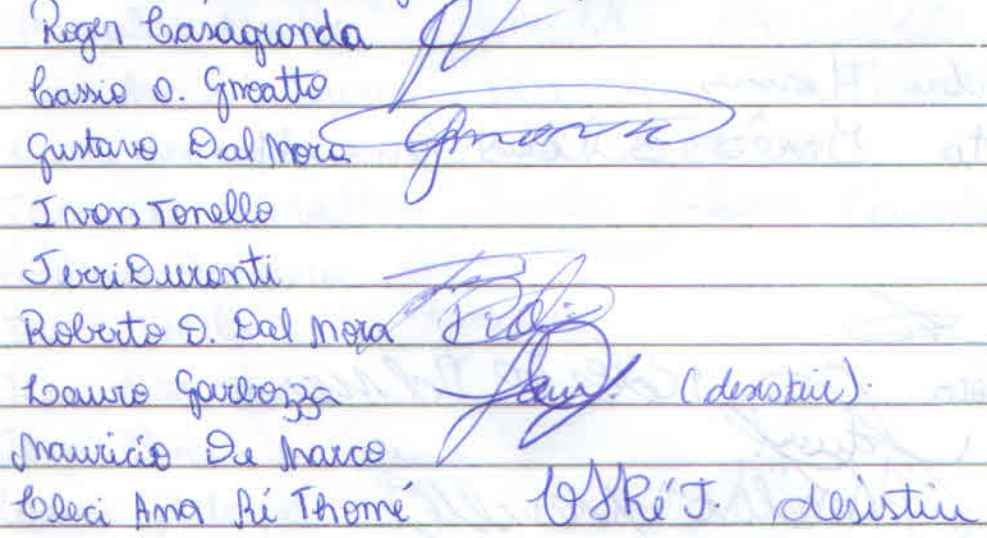 Roger Casagronda
Cassio O.
Gustavo Dal Mora
Ivan Tonello
Jerri Duronti
Roberto D. Dal Mora
Lauro Garbozza (desistiu).
Mauricio De Marco
Cleci Ana Ré Thomé desistiu